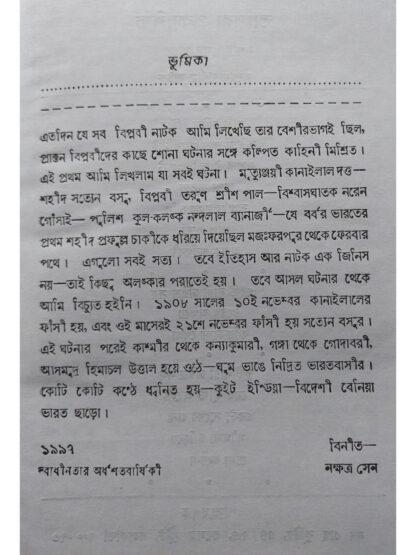 ভূমিকা
এতদিন যে সব বিপ্লবী নাটক আমি লিখেছি তার বেশীরভাগই ছিল,
প্রাক্তন বিপ্লবীদের কাছে শোনা ঘটনার সঙ্গে কল্পিত কাহিনী মিশ্রিত।
এই প্রথম আমি লিখলাম যা সবই ঘটনা। মৃত্যুঞ্জয়ী কানাইলাল দত্ত—
শহীদ সত্যেন বসু, বিপ্লবী তরুণ শ্রীশ পাল—বিশ্বাসঘাতক নরেন
গোঁসাই— পুলিশ কুল-কলঙ্ক নন্দলাল ব্যানার্জী—যে বর্বর ভারতের
প্রথম শহীদ প্রফুল্ল চাকীকে ধরিয়ে দিয়েছিল মজঃফরপুর থেকে ফেরবার
পথে। এগুলো সবই সত্য। তবে ইতিহাস আর নাটক এক জিনিস
নয়—তাই কিছু অলঙ্কার পরাতেই হয়। তবে আসল ঘটনার থেকে
আমি বিচ্যুত হইনি। ১৯০৮ সালের ১০ই নভেম্বর কানাইলালের
ফাঁসী হয়, এবং ওই মাসেরই ২১শে নভেম্বর ফাঁসী হয় সত্যেন বসুর।
এই ঘটনার পরেই কাশ্মীর থেকে কন্যাকুমারী, গঙ্গা থেকে গোদাবরী,
আসমুদ্র হিমাচল উত্তাল হয়ে ওঠে—ঘুম ভাঙে নিদ্রিত ভারতবাসীর।
কোটি কোটি কণ্ঠে ধ্বনিত হয়—কুইট ইণ্ডিয়া—বিদেশী বেনিয়া
ভারত ছাড়ো।
১৯৯৭ বিনীত—
স্বাধীনতার অর্ধশতবার্ষিকী নক্ষত্র সেন